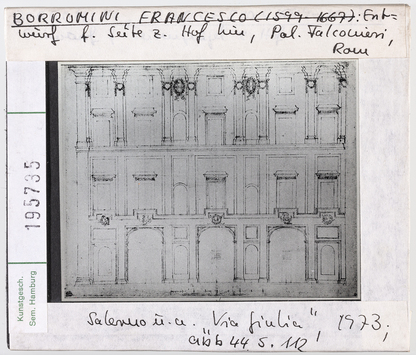 BORROMINI, FRANCESCO (1599-1667): Ent-
wurf f. Seite z. Hof hin, Pal. Falconieri,
Rom
195735
Kunstgesch.
Sem. Hamburg
Salerno u.a. "Via Giulia", 1973;
abb 44 S. 112